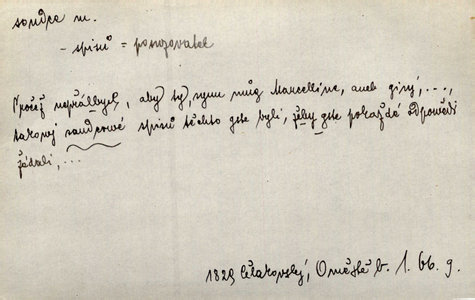 soudce m.
- spisů = posuzovatel
Pročež nepřálbych, aby ty, synu můj Marcelline, aneb giný, ...,
takový saudcowé spisů těchto gste byli, žeby gste pokaždé odpovědi
žádali, ...
1829 Čelakovský, O městě b. 1. 66. 9.